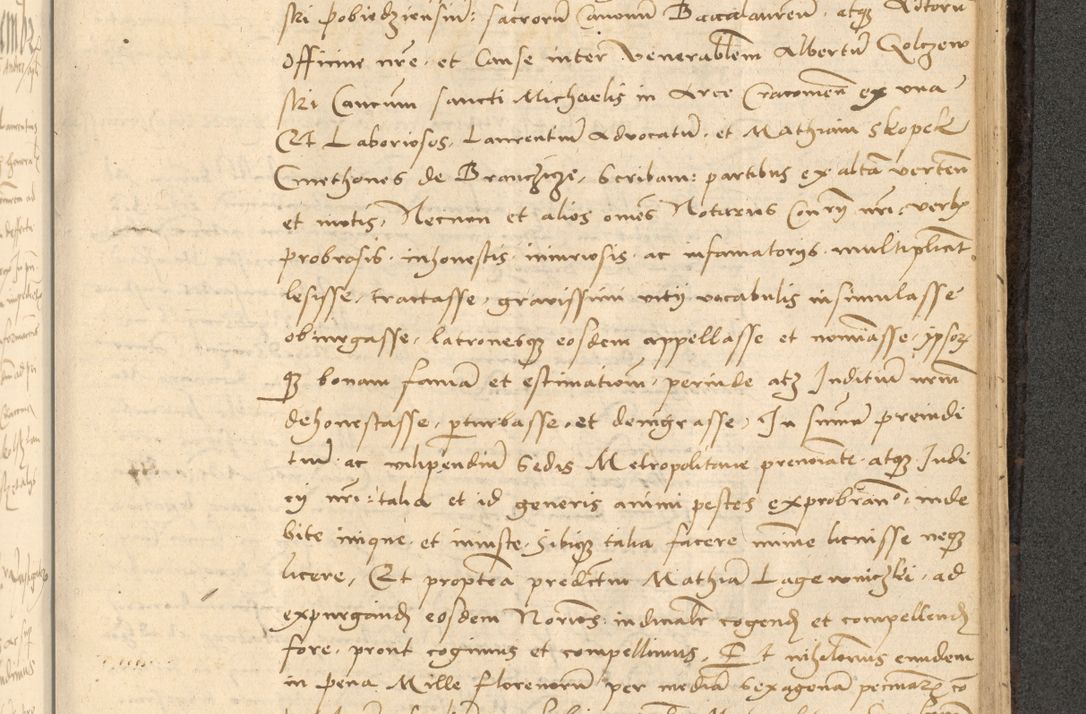 ski pobiedziensiu: sacrorū Canonū Baccalaureū. atq Actorū
Officine nre. et Cause inter Venerablem Albertū Golczew
ski Canonicum sancti Michaelis in Arce Cracovien ex una
Et Laboriosos, Laurentiū Advocatū. et Mathiam Skopek
Cmethones de Branczicze, Scribam: partibus ex altā verten
et motis, Necnon et alios omēs Notarios Con nri. verbis
probrosis. inhonestis. iniuriosis. ac infamatorijs. multiplicit
lesisse, tractasse, gravissimi vitij vocabulis insimulasse
obiurgasse, latronesq eosdem appellasse et nomiasse, ipsor
q bonam famā et estimationē, perinde atq Juditiū nrm
dehonestasse, pturbasse, et denigrasse, In sumū preiudi
tiū. ac vilipendiū Sedis Metropolitane prenoiate. atq Judi
cij nri: talia et id generis animi pestes exprobran, inde
bite inique. et iniuste. Sibiq talia facere mīme licuisse neq
licere, Et proptea predictum Mathiā Lagewniczki. ad
expurgand eosdem Norios. iudicialr cogend et compellend
fore, prout cogimus et compellimus, Et nihilominus eundem
in pena Mille florenorum per mediā sexagenā